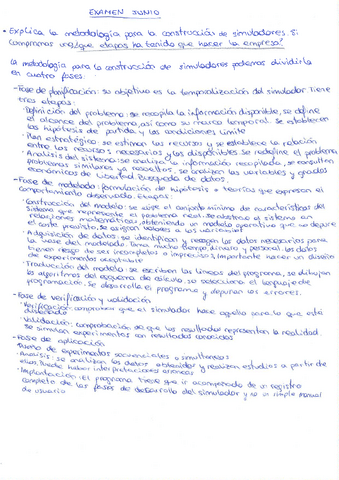 EXAMEN JUNIO
• Explica la metodología para la construcción de simuladores. Si
compramos uno, ¿que etapas ha tenido que hacer la empresa?
La metodología para la construcción de simuladores podemos dividirla
en cuatro fases:
-Fase de planificación: su objetivo es la temporalización del simulador. Tiene
tres etapas:
·Definición del problema: se recopila la información disponible, se define
el alcance del problema, así como su marco temporal. Se establecen
las hipótesis de partida y las condiciones límite
·Plan estratégico: se estiman los recursos y se establece la relación
entre los recursos necesarios y los disponibles. Se redefine el problema
·Análisis del sistema: se analiza la información recopilada, se consultan
problemas similares ya resueltos. Se analizan las variables y grados
de libertad. Búsqueda de datos
-Fase de modelado: formulación de hipótesis o teorías que expresan el
comportamiento observado. Etapas:
·Construcción del modelo: se elige el conjunto mínimo de características del
sistema que represente el problema real. Se abstrae el sistema en
relaciones matemáticas, obteniendo un modelo operativo que no supere
el coste previsto, se asignan valores a las variables
·Adquisición de datos: se identifican y recogen los datos necesarios para
la base del modelado. Toma mucho tiempo, dinero y personal. Los datos
tienen riesgo de ser incompletos o imprecisos. Importante hacer un diseño
de experimentos
·Traducción del modelo: se escriben las líneas del programa, se dibujan
los algoritmos del esquema de cálculo, se selecciona el lenguaje de
programación. Se desarrolla el programa y depuran los errores.
-Fase de verificación y validación
·Verificación: comprobar que el simulador hace aquello para lo que está
diseñado
·Validación: comprobación de que los resultados representan la realidad.
Se simulan experimentos con resultados conocidos
-Fase de aplicación
·Diseño de experimentos secuenciales o simultáneos
·Análisis: se analizan los datos obtenidos y realizan estudios a partir de
ellos. Puede haber interpretaciones erróneas
·Implantación: El programa tiene que ir acompañado de un registro
completo de las fases de desarrollo del simulador y de un simple manual
de usuario